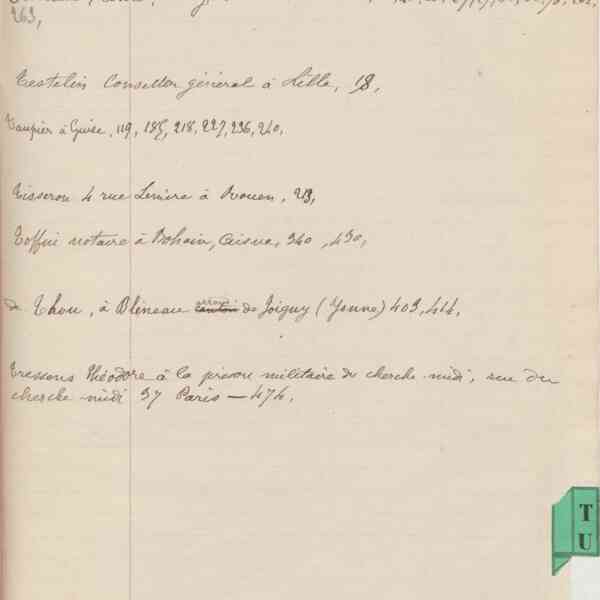 263,
Testelin Conseiller général à Lille, 18,
Taupier à Guise, 119, 185, 218, 227, 236, 240,
Tisserou 4 rue à Rouen, 213,
Toffin notaire à Bohain, Aisne, 340, 430,
de Thou, à Bléneau canton arron de Joigny (Yonne) 403, 414,
Tressens Théodore à la prison militaire du cherche midi, rue du
cherche midi 37 Paris — 474,
T
U